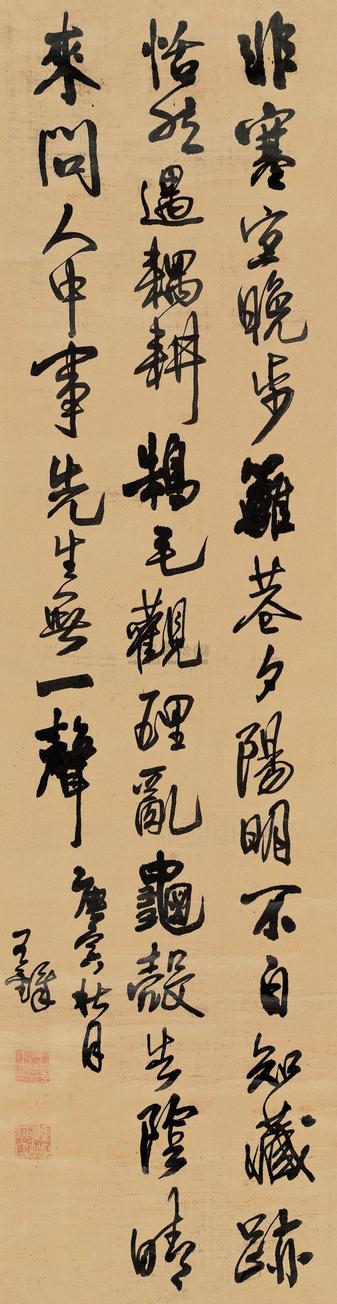 非蹇宜晚步籬巷夕陽明不自知藏跡
恬然遇耦耕毛觀理亂龜殼告陰晴
來問人中事先生無一聲
庚寅秋月
王鐸